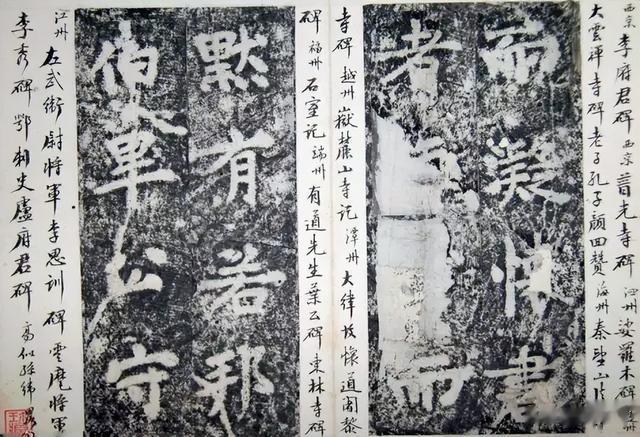 西京 李府君碑 西京 普光寺碑 泗州 娑羅木碑
大雲禪寺碑 老子孔子顏回贊 海州 秦望山法
而凝書
者而
寺碑 越州 嶽麓山寺記 潭州 大律故懷道闍黎
碑 福州 石室記 端州 有道先生葉公碑 東林寺碑
默有若邪
公守
江州 左武衛尉將軍李思訓碑 雲麾將軍
李秀碑 鄂刺史盧府君碑 高似孫緯略